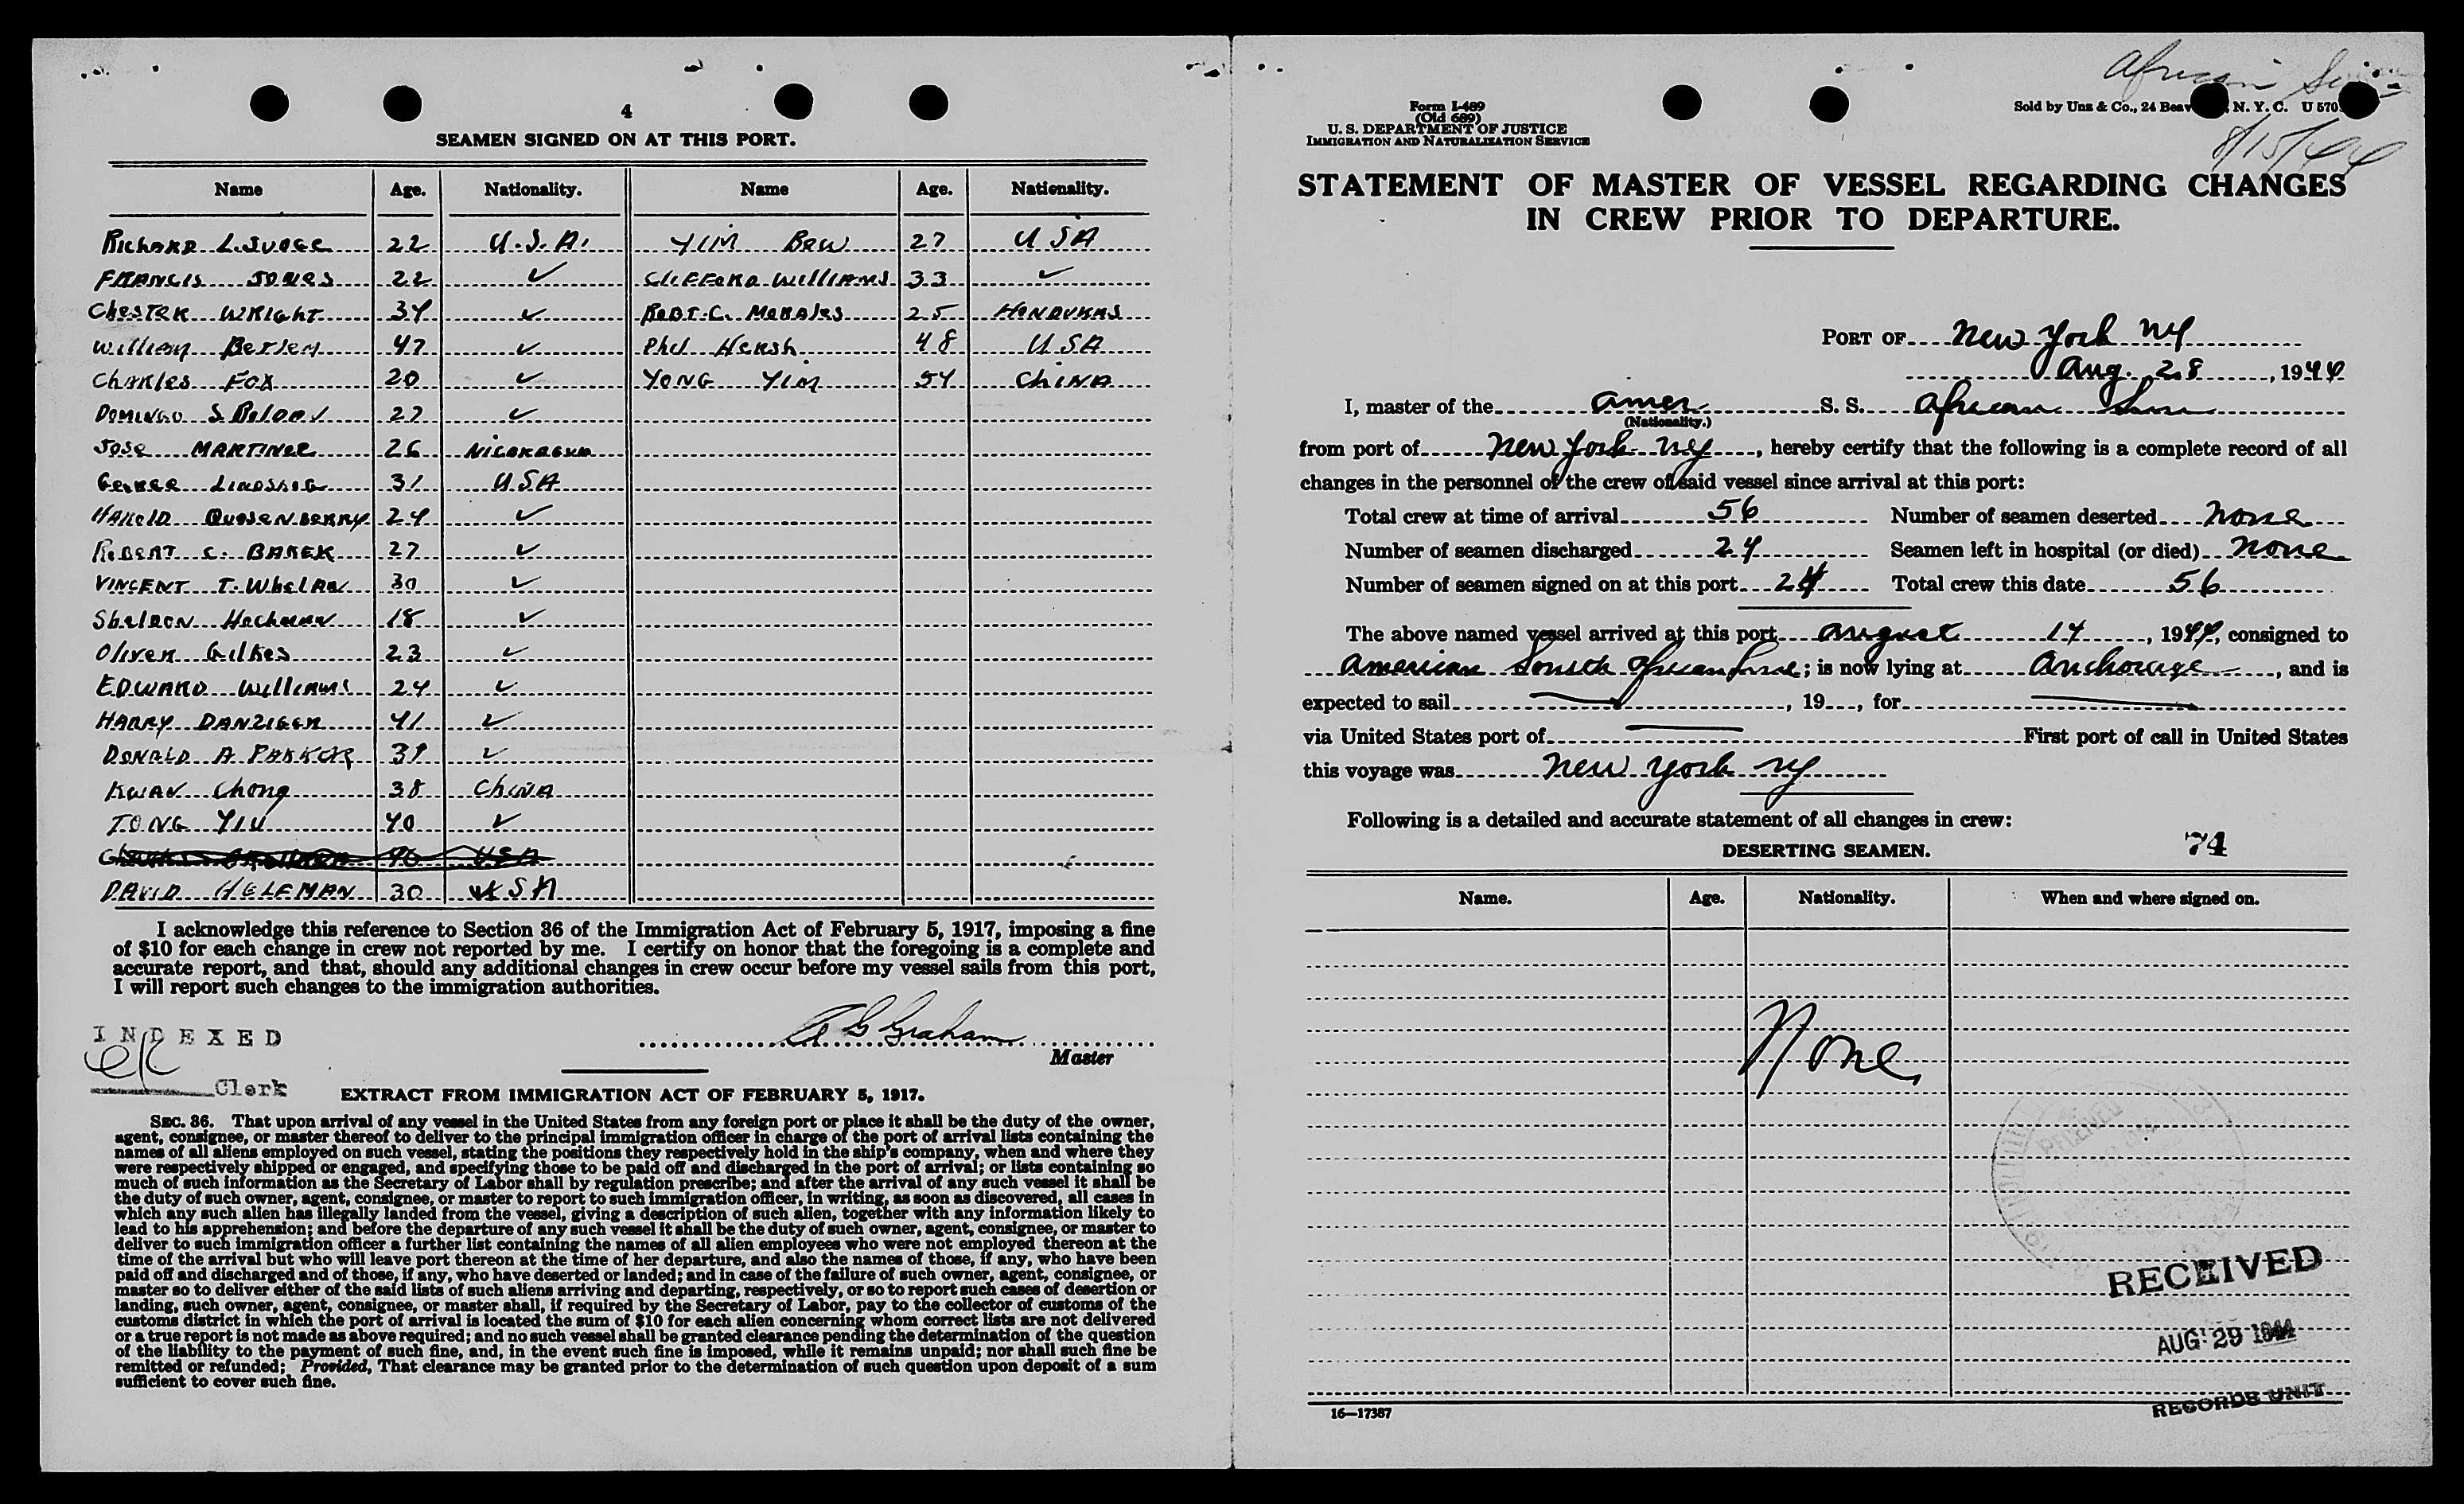 4
SEAMEN SIGNED ON AT THIS PORT.
Name Age. Nationality. Name Age. Nationality.
RICHARD L. JUDGE 22 U.S.A. YIM BEW 27 USA
FRANCIS JONES 22 ✓ CLIFFORD WILLIAMS 33 ✓
CHESTER WRIGHT 34 ✓ ROBT. C. MORALES 25 HONDURAS
WILLIAM 47 ✓ Phil Hersh 48 USA
CHARLES FOX 20 ✓ YONG YIM 54 CHINA
DOMINGO S. 27 ✓
JOSE MARTINEZ 26 NICARAGUA
GEORGE 31 USA
HAROLD QUESENBERRY 24 ✓
ROBERT C. BAKER 27 ✓
VINCENT T. WHELAN 30 ✓
SHELDON HOCHMAN 18 ✓
OLIVER GILKES 23 ✓
EDWARD WILLIAMS 24 ✓
HARRY DANZIGER 41 ✓
DONALD A PARKER ✓
KWAN CHONG 38 CHINA
TONG YIU 40 ✓
USA
DAVID HELFMAN 30 USA
I acknowledge this reference to Section 36 of the Immigration Act of February 5, 1917, imposing a fine
of $10 for each change in crew not reported by me. I certify on honor that the foregoing is a complete and
accurate report, and that, should any additional changes in crew occur before my vessel sails from this port,
I will report such changes to the immigration authorities.
INDEXED
Graham
Master
Clerk
EXTRACT FROM IMMIGRATION ACT OF FEBRUARY 5, 1917.
SEC. 36. That upon arrival of any vessel in the United States from any foreign port or place it shall be the duty of the owner,
agent, consignee, or master thereof to deliver to the principal immigration officer in charge of the port of arrival lists containing the
names of all aliens employed on such vessel, stating the positions they respectively hold in the ship's company, when and where they
were respectively shipped or engaged, and specifying those to be paid off and discharged in the port of arrival; or lists containing so
much of such information as the Secretary of Labor shall by regulation prescribe; and after the arrival of any such vessel it shall be
the duty of such owner, agent, consignee, or master to report to such immigration officer, in writing, as soon as discovered, all cases in
which any such alien has illegally landed from the vessel, giving a description of such alien, together with any information likely to
lead to his apprehension; and before the departure of any such vessel it shall be the duty of such owner, agent, consignee, or master to
deliver to such immigration officer a further list containing the names of all alien employees who were not employed thereon at the
time of the arrival but who will leave port thereon at the time of her departure, and also the names of those, if any, who have been
paid off and discharged and of those, if any, who have deserted or landed; and in case of the failure of such owner, agent, consignee, or
master so to deliver either of the said lists of such aliens arriving and departing, respectively, or so to report such cases of desertion or
landing, such owner, agent, consignee, or master shall, if required by the Secretary of Labor, pay to the collector of customs of the
customs district in which the port of arrival is located the sum of $10 for each alien concerning whom correct lists are not delivered
or a true report is not made as above required; and no such vessel shall be granted clearance pending the determination of the question
of the liability to the payment of such fine, and, in the event such fine is imposed, while it remains unpaid; nor shall such fine be
remitted or refunded; Provided, That clearance may be granted prior to the determination of such question upon deposit of a sum
sufficient to cover such fine.
African Sun
Form I-489
(Old 689)
U. S. DEPARTMENT OF JUSTICE
IMMIGRATION AND NATURALIZATION SERVICE
Sold by Unz & Co., 24 Beav N. Y. C. U 570
8/15/44
STATEMENT OF MASTER OF VESSEL REGARDING CHANGES
IN CREW PRIOR TO DEPARTURE.
PORT OF New York NY
Aug. 28, 1944
I, master of the Amer S. S. African Sun
(Nationality.)
from port of New York NY, hereby certify that the following is a complete record of all
changes in the personnel of the crew of said vessel since arrival at this port:
Total crew at time of arrival 56 Number of seamen deserted None
Number of seamen discharged 24 Seamen left in hospital (or died) None
Number of seamen signed on at this port 24 Total crew this date 56
The above named vessel arrived at this port August 14, 1944, consigned to
American South African Line; is now lying at Anchorage, and is
expected to sail , 19 , for
via United States port of First port of call in United States
this voyage was New York NY
Following is a detailed and accurate statement of all changes in crew:
74
DESERTING SEAMEN.
Name. Age. Nationality. When and where signed on.
None
RECEIVED
AUG 29 1944
RECORDS UNIT
16—17387